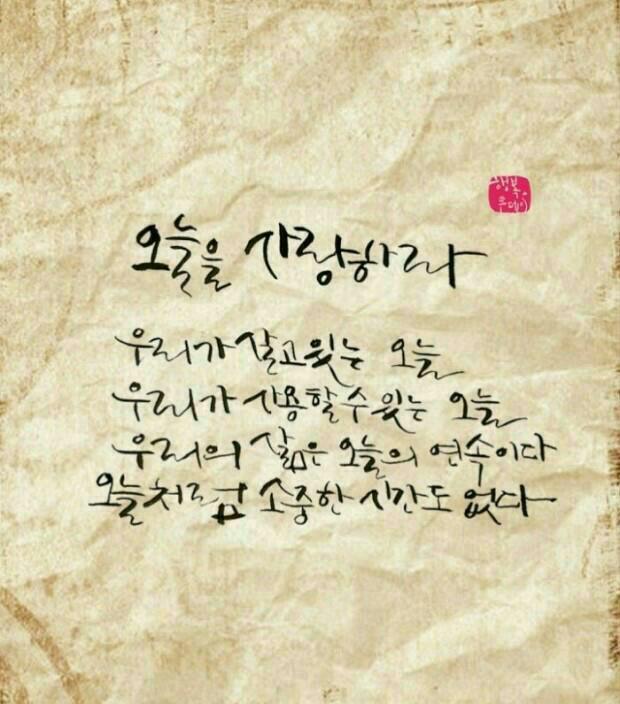 행복한
투데이
오늘을 사랑하라
우리가 살고있는 오늘
우리가 사용할 수 있는 오늘
우리의 삶은 오늘의 연속이다
오늘처럼 소중한 시간도 없다